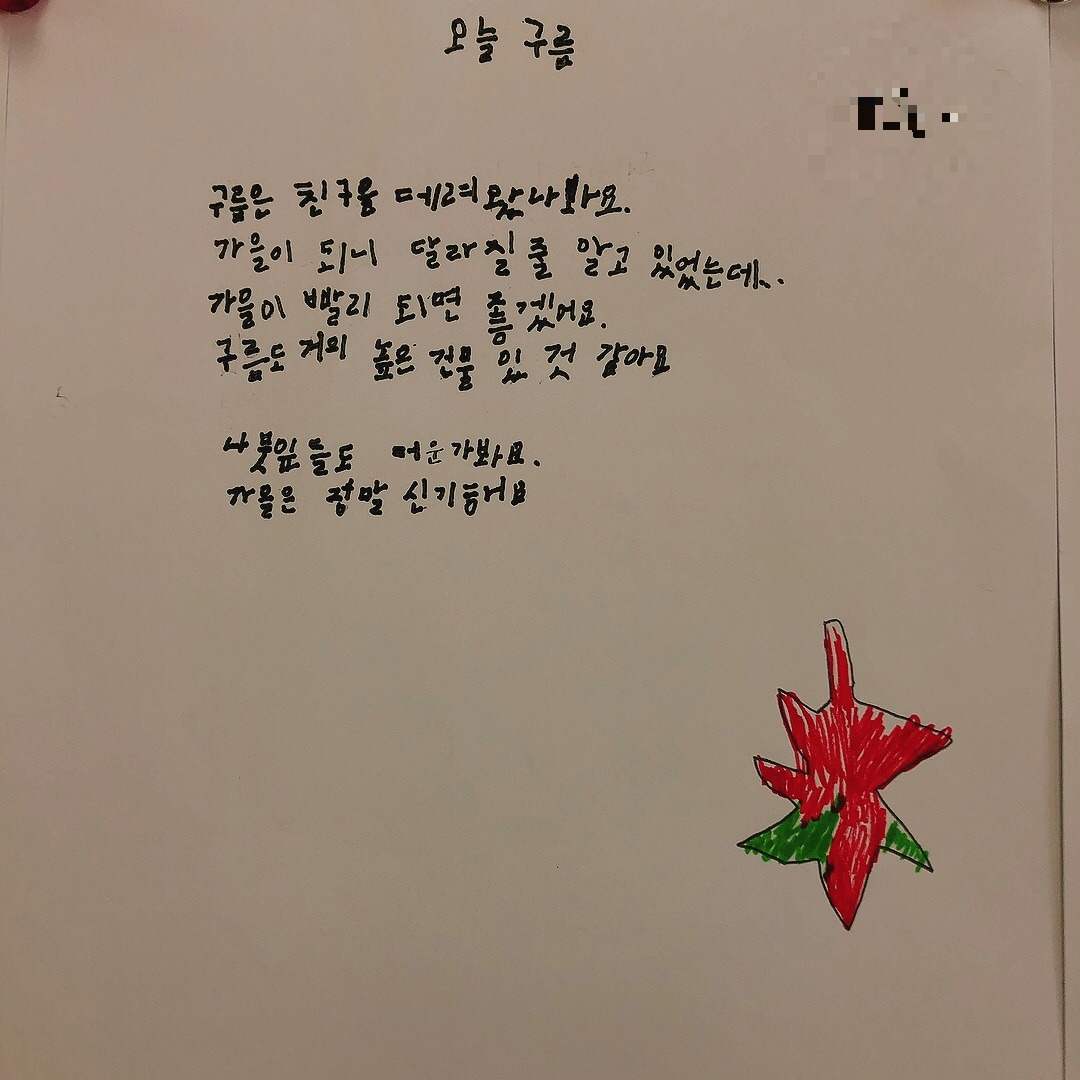 오늘 구름
구름은 친구을 데려왔나봐요.
가을이 되니 달라질 줄 알고 있었는데..
가을이 빨리 되면 좋겠어요.
구름도 거의 높은 건물 있 것 같아요
나뭇잎들도 더운가봐요.
가을은 정말 신기해요